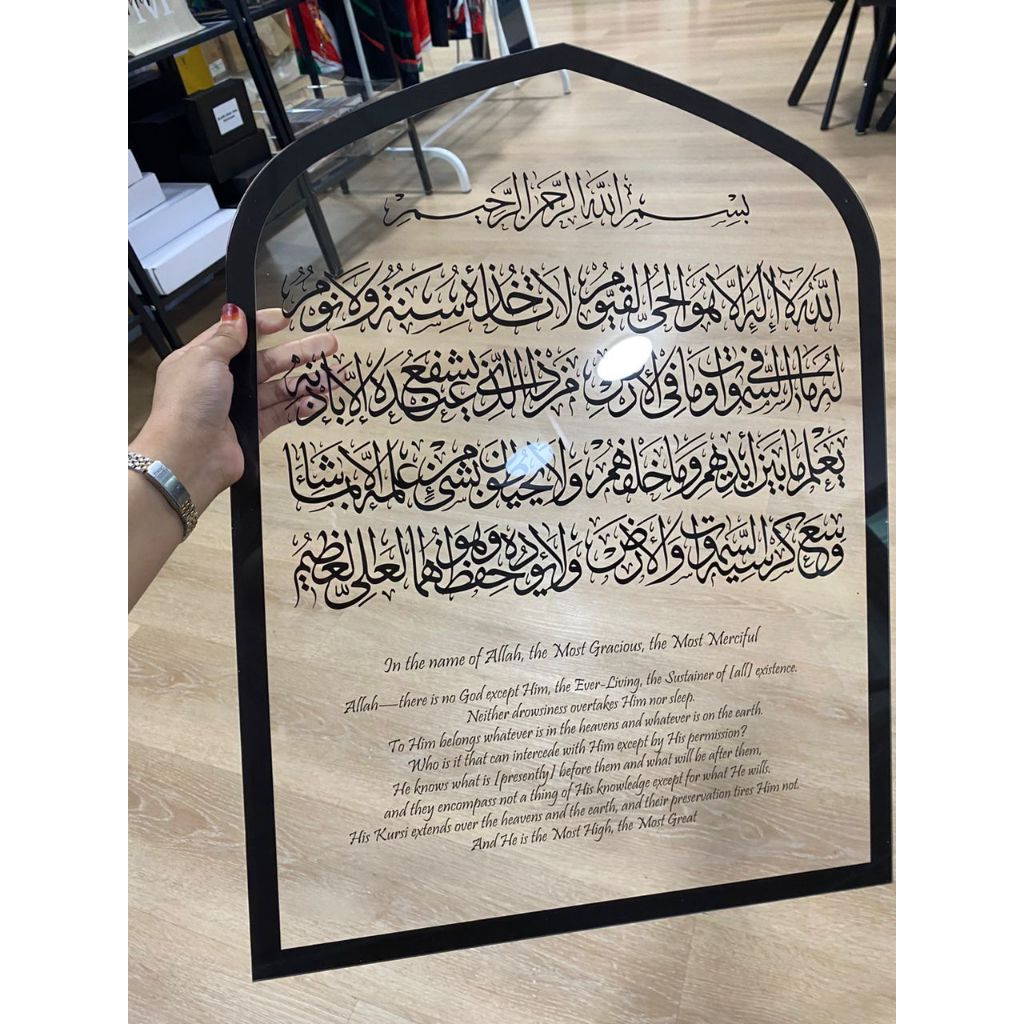 بِسْمِ اللَّهِ الرَّحْمَٰنِ الرَّحِيمِ
اللَّهُ لَا إِلَٰهَ إِلَّا هُوَ الْحَيُّ الْقَيُّومُ لَا تَأْخُذُهُ سِنَةٌ وَلَا نَوْمٌ
لَهُ مَا فِي السَّمَٰوَاتِ وَمَا فِي الْأَرْضِ مَنْ ذَا الَّذِي يَشْفَعُ عِنْدَهُ إِلَّا بِإِذْنِهِ
يَعْلَمُ مَا بَيْنَ أَيْدِيهِمْ وَمَا خَلْفَهُمْ وَلَا يُحِيطُونَ بِشَيْءٍ مِنْ عِلْمِهِ إِلَّا بِمَا شَاءَ
وَسِعَ كُرْسِيُّهُ السَّمَٰوَاتِ وَالْأَرْضَ وَلَا يَئُودُهُ حِفْظُهُمَا وَهُوَ الْعَلِيُّ الْعَظِيمُ
In the name of Allah, the Most Gracious, the Most Merciful
Allah—there is no God except Him, the Ever-Living, the Sustainer of [all] existence.
Neither drowsiness overtakes Him nor sleep.
To Him belongs whatever is in the heavens and whatever is on the earth.
Who is it that can intercede with Him except by His permission?
He knows what is [presently] before them and what will be after them,
and they encompass not a thing of His knowledge except for what He wills.
His Kursi extends over the heavens and the earth, and their preservation tires Him not.
And He is the Most High, the Most Great